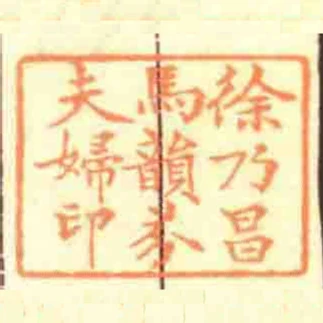 徐乃昌
馬韻芬
夫婦印